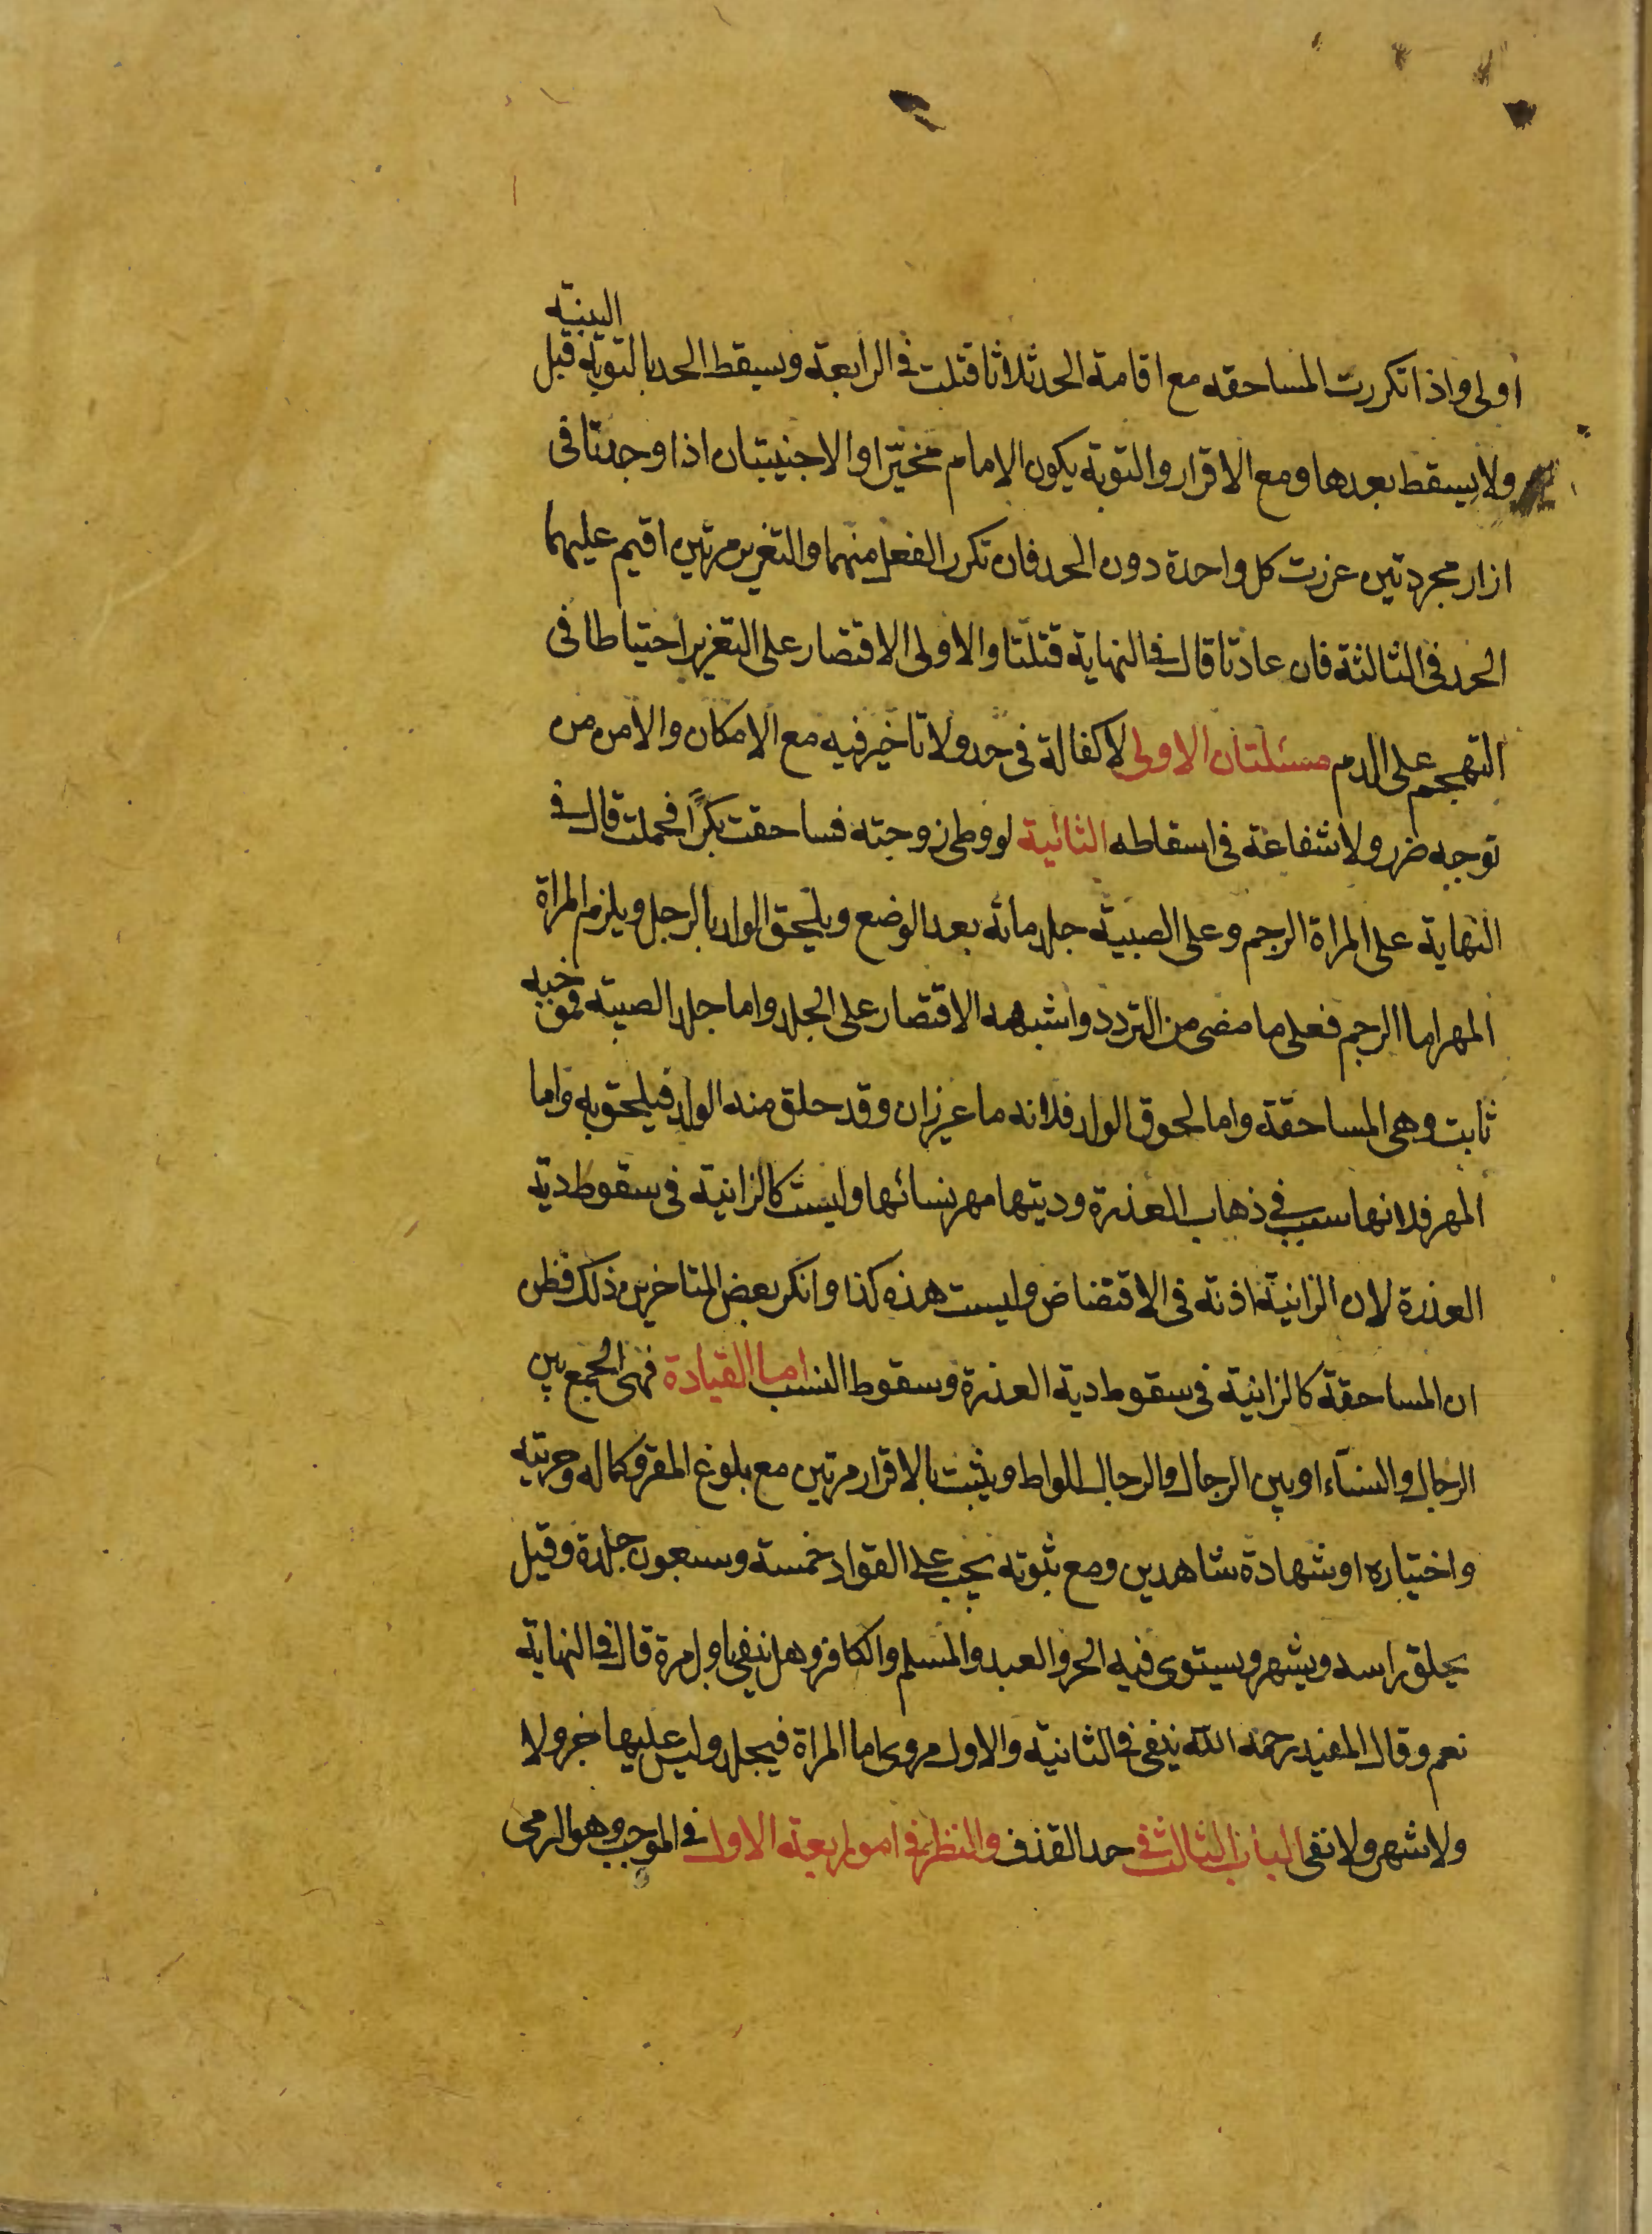 اولى واذا تكررت المساحقه مع اقامة الحد ثلاثا قتلت فى الرابعة ويسقط الحد بالتوبة قبل البينه
ولا يسقط بعدها ومع الاقرار والتوبة يكون الامام مخيّرا والاجنبيتان اذا وجدتا فى
ازار مجردتين عزرت كل واحدة دون الحد فان تكرر الفعل منهما والتعزير مرتين اقيم عليهما
الحد فى الثالثة فان عادتا قال فى النهاية قتلتا والاولى الاقتصار على التعزير احتياطا فى
التهجم على الدم مسئلتان الاولى لا كفالة فى حد ولا تاخير فيه مع الامكان والامن من
توجه ضرر ولا شفاعة فى اسقاطه الثانية لو وطى زوجته فساحقت بكرًا فحملت قال فى
النهاية على المراة الرجم وعلى الصبية جلد مائه بعد الوضع ويلحق الولد بالرجل ويلزم المراة
المهر اما الرجم فعلى ما مضى من التردد واشبهه الاقتصار على الجلد واما جلد الصبية فموجبه
ثابت وهى المساحقة واما لحوق الولد فلانه ما غير زان وقد حلق منه الولد فيلحق به واما
المهر فلانها سبب فى ذهاب العذرة وديتها مهر نسائها وليست كالزانية فى سقوط دية
العذرة لان الزانية اذنة فى الاقتضاض وليست هذه كذا وانكر بعض المتاخرين ذلك فظن
ان المساحقة كالزانية فى سقوط دية العذرة وسقوط النسب اما القيادة فهى الجمع بين
الرجال والنسآء او بين الرجال والرجال للواط ويثبت بالاقرار مرتين مع بلوغ المقر وكماله وحريته
واختياره او شهادة شاهدين ومع ثبوته يجب على القواد خمسة وسبعون جلدة وقيل
يحلق راسه ويشهر ويستوى فيه الحر والعبد والمسلم والكافر وهل ينفى باول مرة قال فى النهاية
نعم وقال المفيد رحمه الله ينفى فى الثانية والاول مروى اما المراة فيجلد وليس عليها خر ولا
ولا شهر ولا نفى الباب الثالث فى حد القذف والنظر فى امور اربعة الاول فى الموجب وهو الرمى